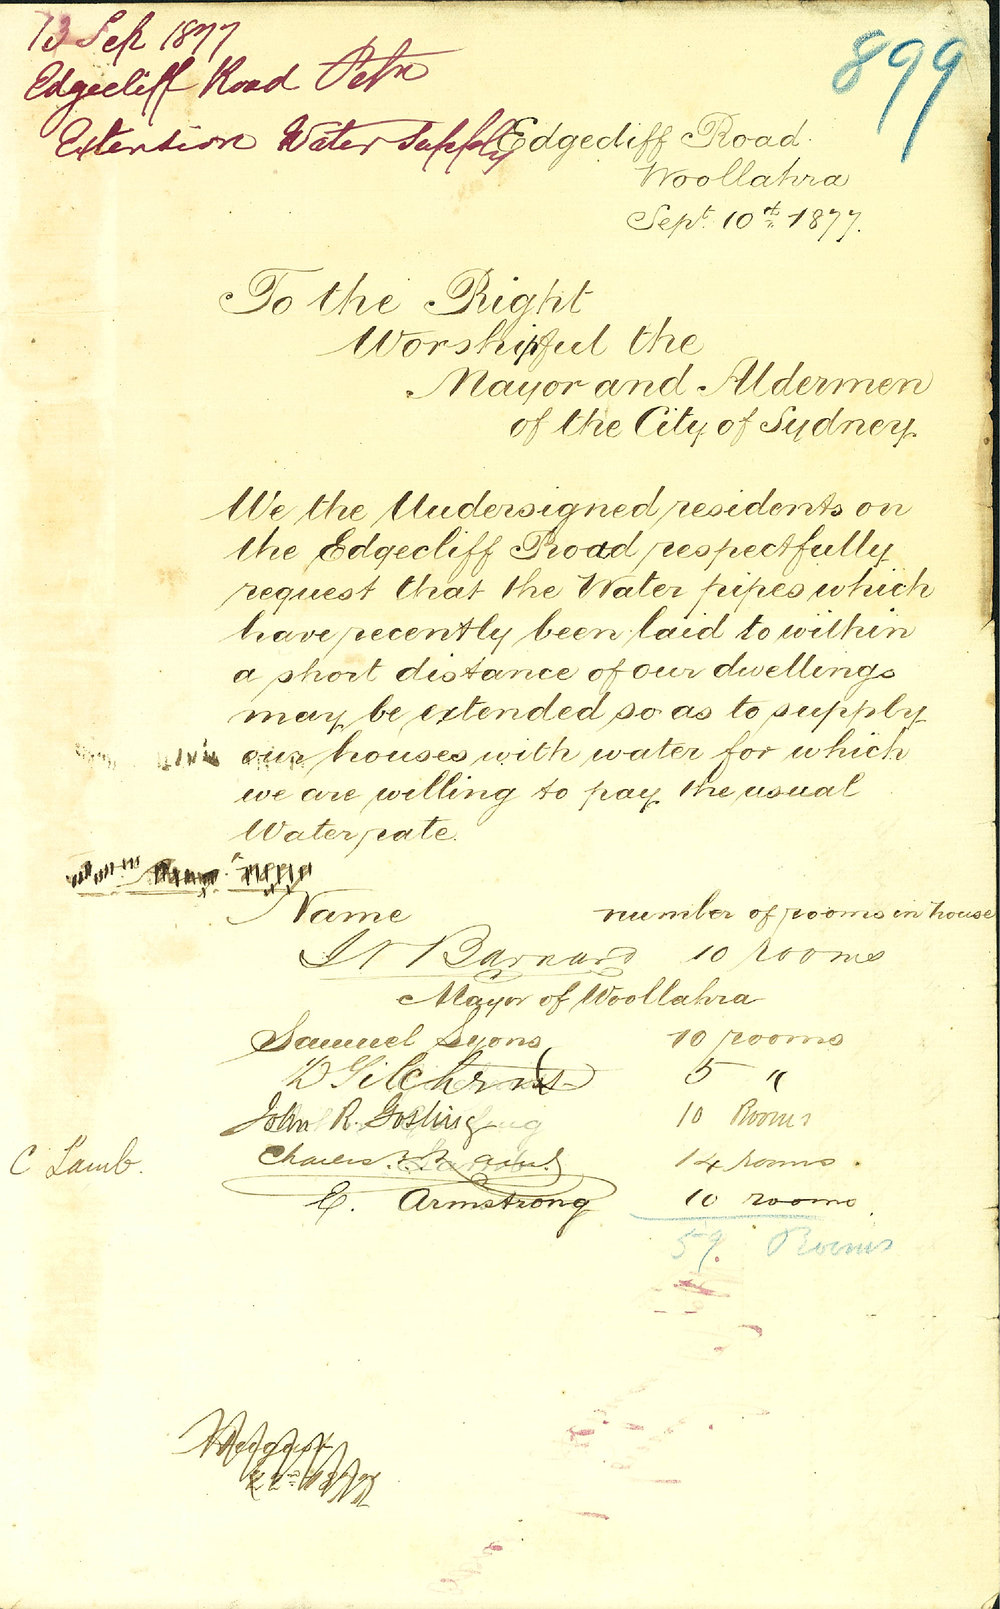 13 Sep 1877
Edgecliff Road Petn
Extension Water Supply
899
Edgecliff Road.
Woollahra
Sept. 10th 1877.
To the Right
Worshipful the
Mayor and Aldermen
of the City of Sydney.
We the Undersigned residents on
the Edgecliff Road respectfully
request that the Water pipes which
have recently been laid to within
a short distance of our dwellings
may be extended so as to supply
our houses with water for which
we are willing to pay the usual
Water rate.
Name number of rooms in house
Barnard 10 rooms
Mayor of Woollahra
Samuel Lyons 10 rooms
D Gilchrist 5 "
John R. Gosling 10 Rooms
C Lamb. Charles 14 rooms.
E. Armstrong 10 rooms.
59. Rooms